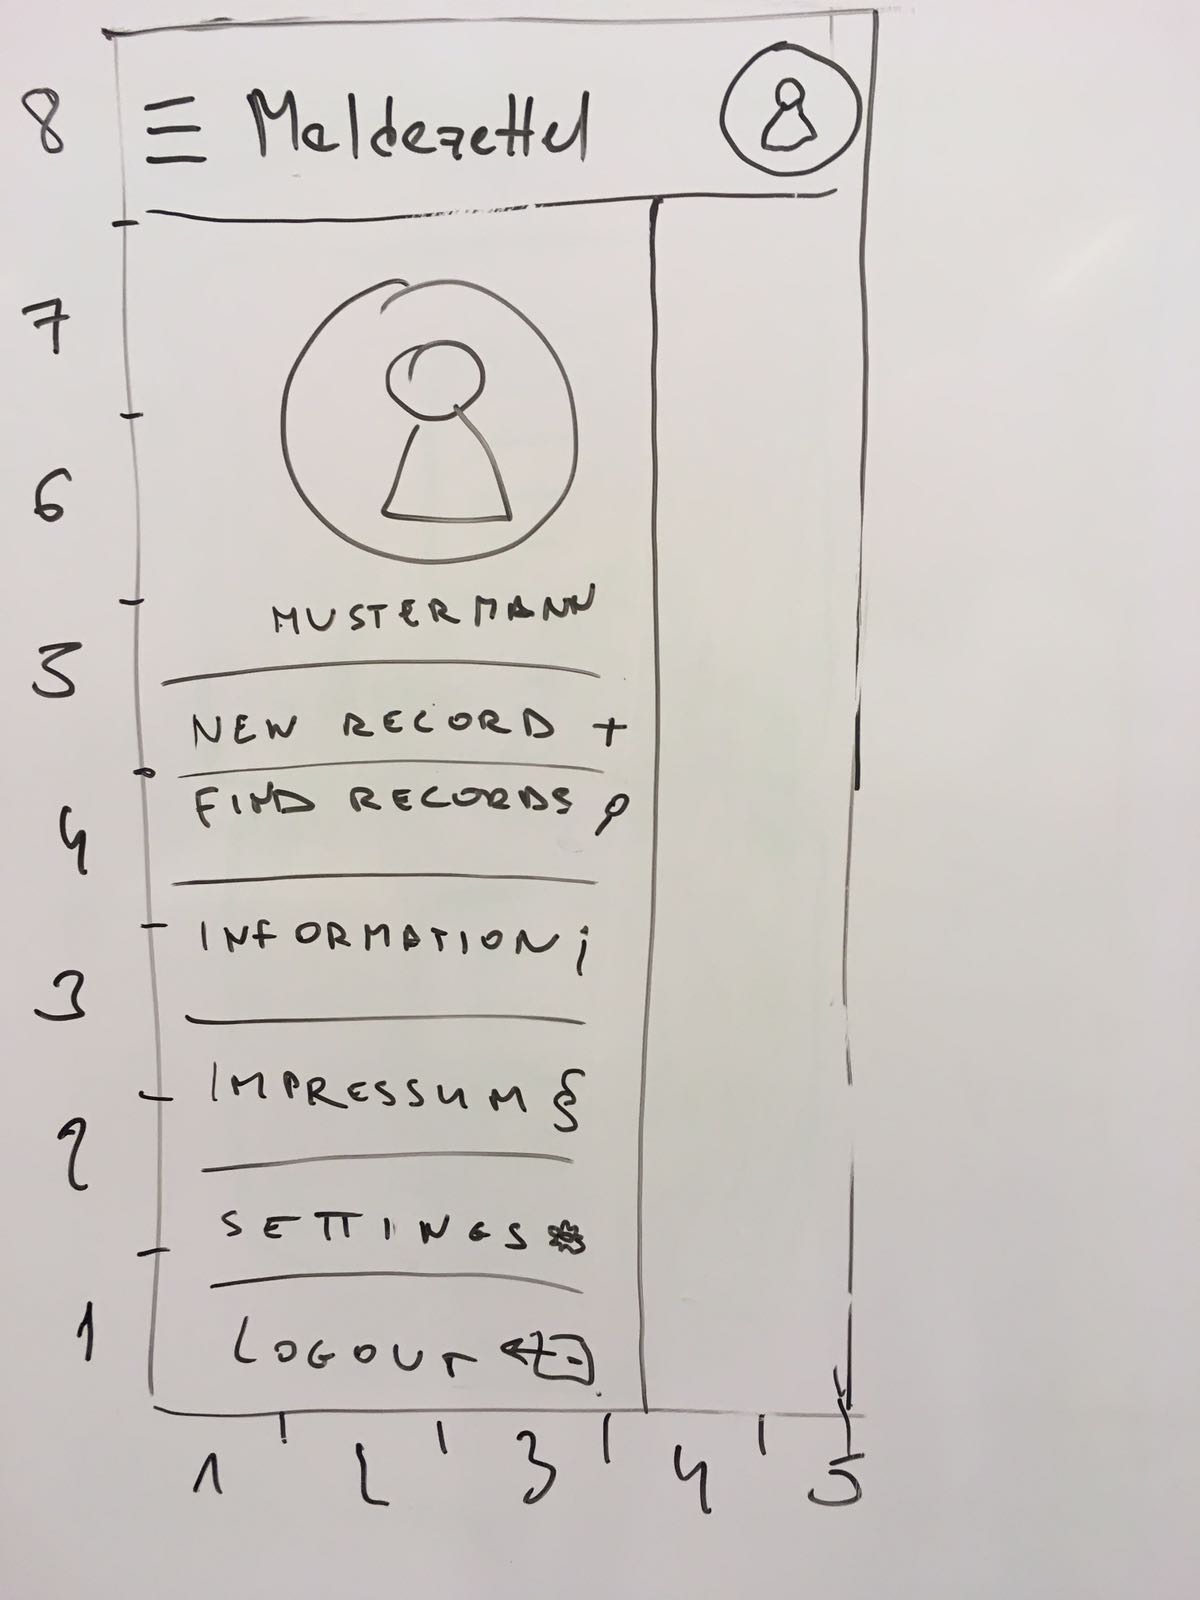 8 Meldezettel
7
6
MUSTERMANN
5
NEW RECORD +
FIND RECORDS
4
INFORMATION i
3
IMPRESSUM §
2
SETTINGS
1 LOGOUT
1 2 3 4 5